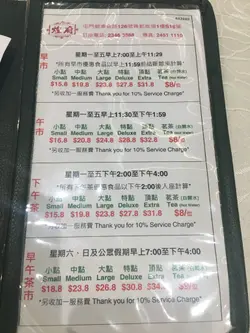 煌府
早市
星期一至五早上7:00至上午11:29
小點 中點 大點 特點 頂點 茗茶
Small Medium Large Deluxe Extra Tea
$15.8 $18.8 $23.8 $27.8 $31.8 $8/位
*另收加一服務費 Thank you for 10% Service Charge*
午市
星期一至五早上11:30至下午1:59
小點 中點 大點 特點 頂點 茗茶
Small Medium Large Deluxe Extra Tea
$18.8 $23.8 $26.8 $32.8 $8/位
*另收加一服務費 Thank you for 10% Service Charge*
下午茶市
星期一至五下午2:00至下午4:00
小點 中點 大點 特點 頂點 茗茶
Small Medium Large Deluxe Extra Tea
$15.8 $18.8 $23.8 $27.8 $31.8 $8/位
*另收加一服務費 Thank you for 10% Service Charge*
早市
星期六、日及公眾假期早上7:00至下午4:00
小點 中點 大點 特點 頂點 茗茶
Small Medium Large Deluxe Extra Tea
$18.8 $23.8 $26.8 $8/位
*另收加一服務費 Thank you for 10% Service Charge*